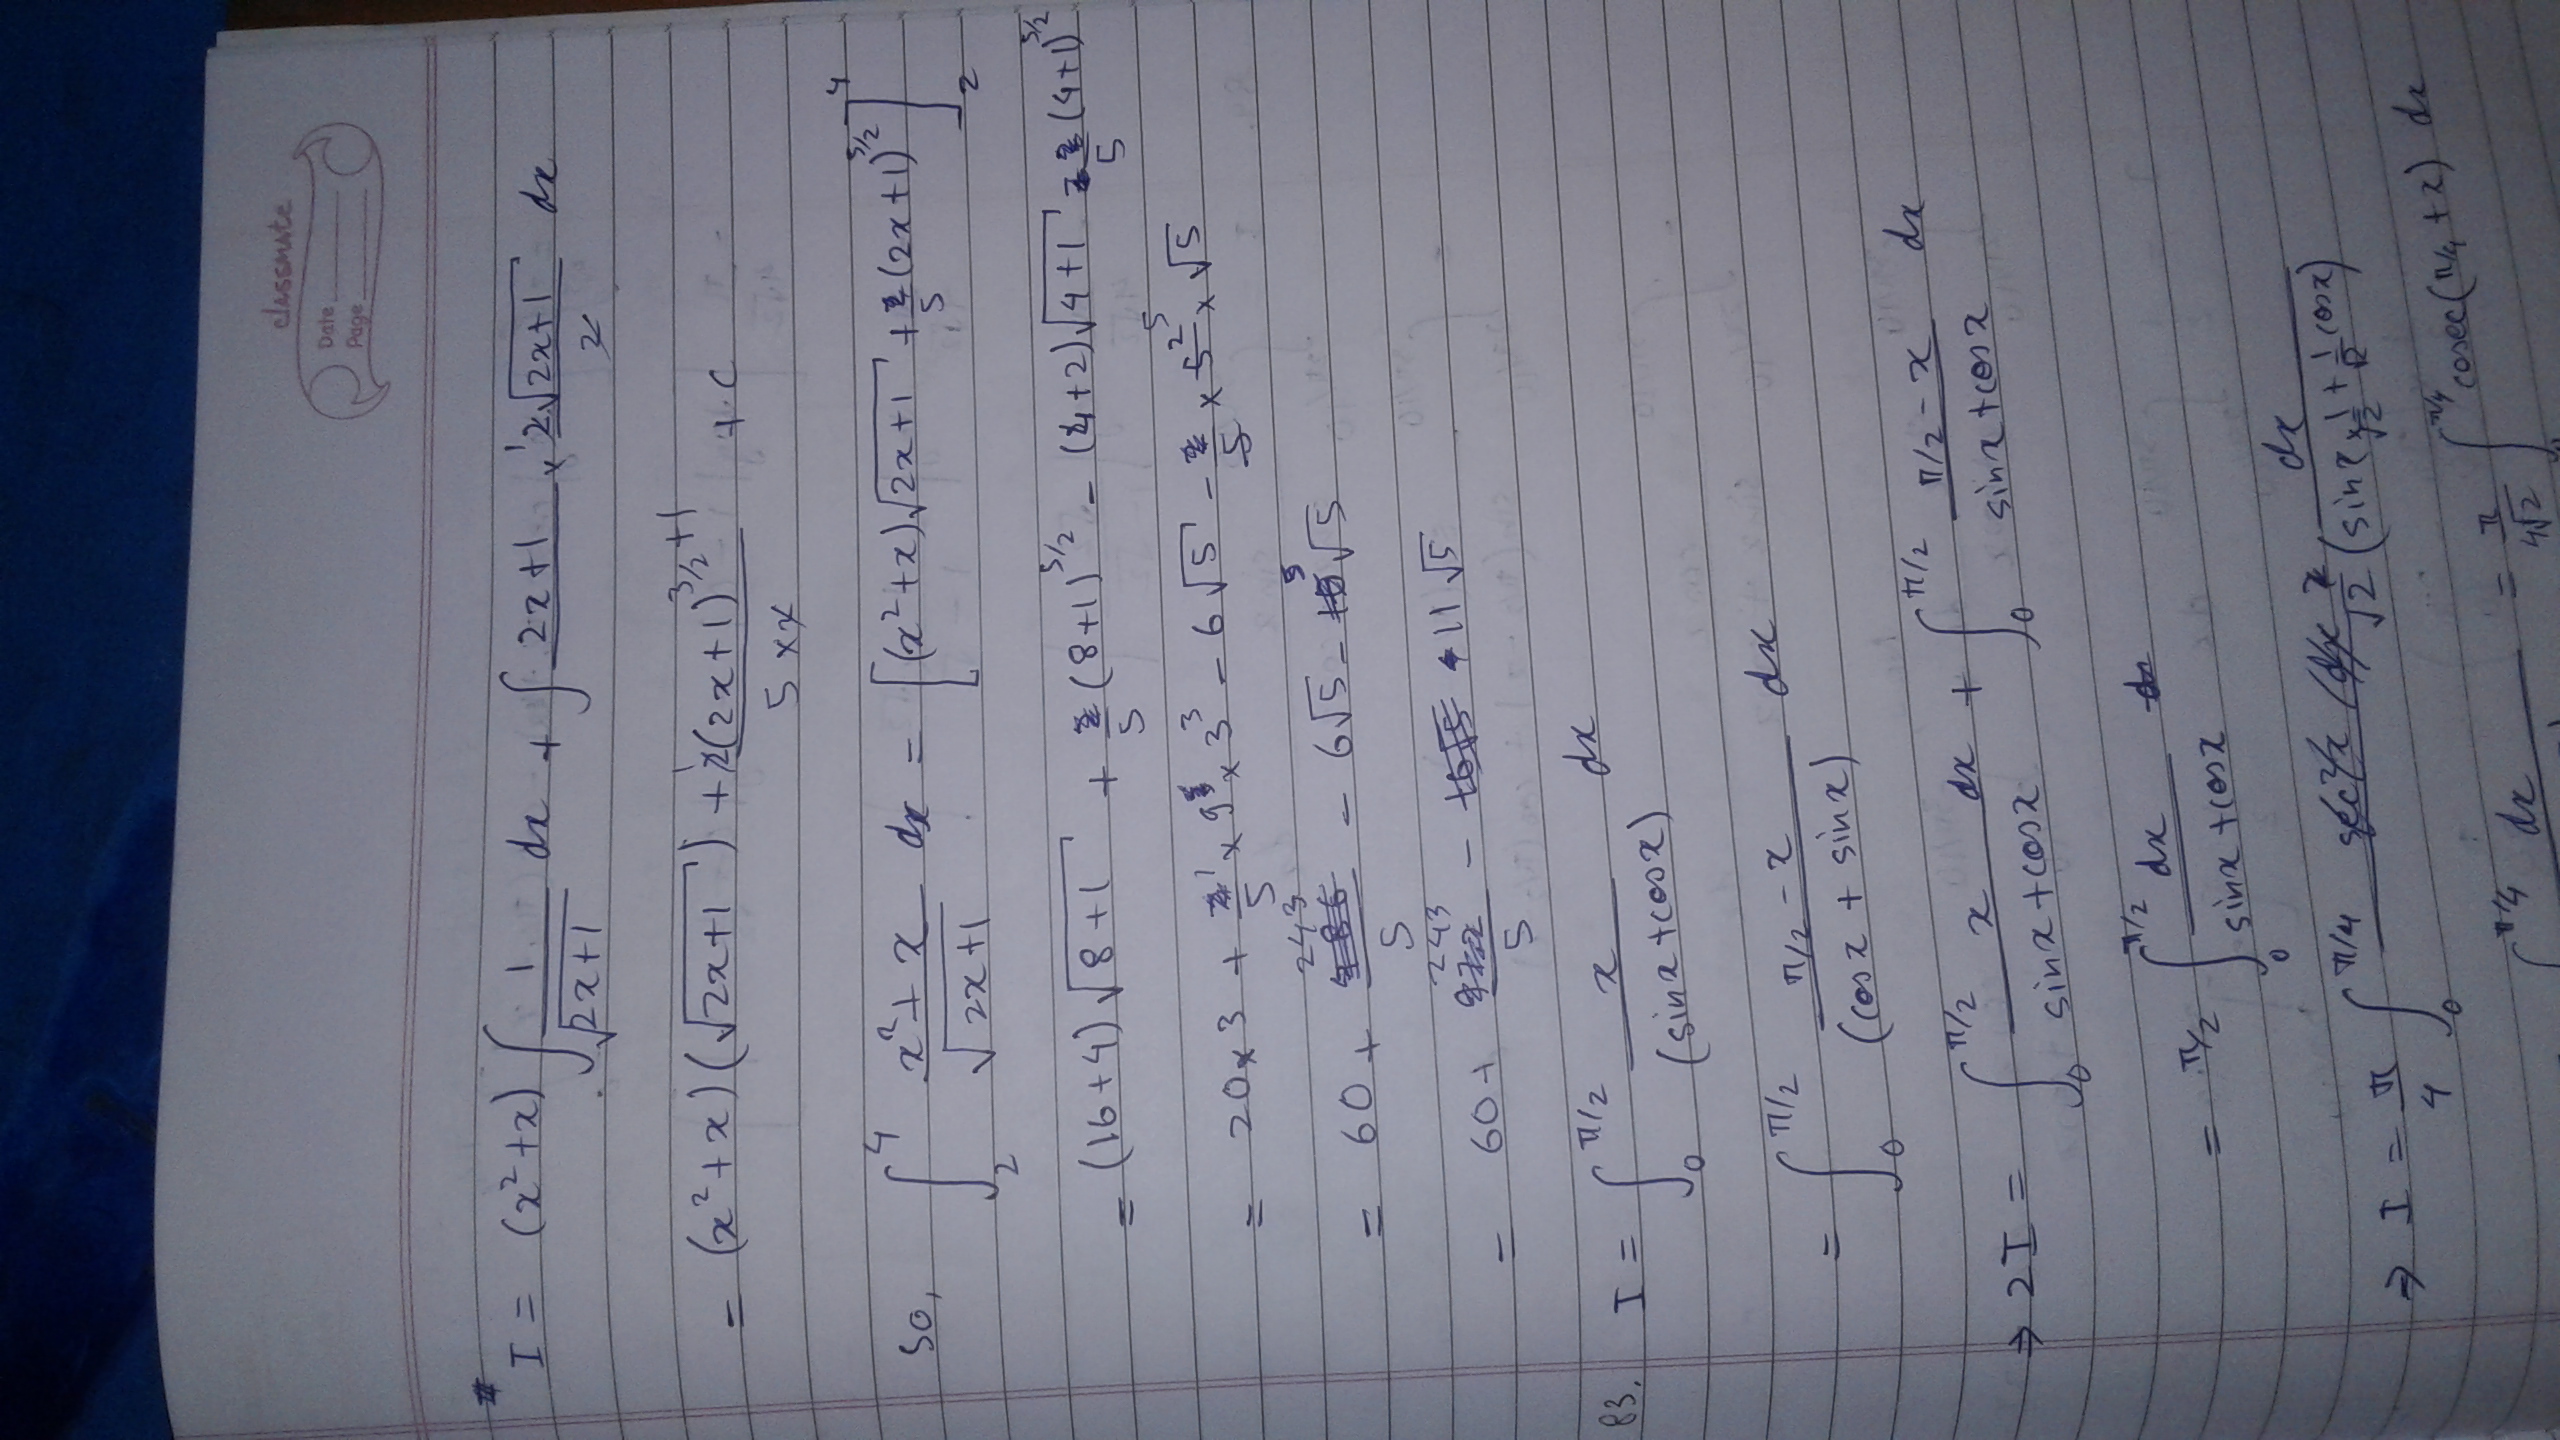 classmate
Date
Page
# I = (x²+x) ∫ 1/√(2x+1) dx + ∫ (2x+1) × 2√(2x+1)/2 dx
= (x²+x)(√(2x+1)) + (2x+1)^(3/2+1)/5 + C
So, ∫₂⁴ (x²+x)/√(2x+1) dx = [(x²+x)√(2x+1) + 1/5 (2x+1)^(5/2)]₂⁴
= (16+4)√(8+1) + 1/5 (8+1)^(5/2) - (4+2)√(4+1) - 1/5 (4+1)^(5/2)
= 20×3 + 1/5 × 9 × 3³ - 6√5 - 1/5 × 5² × √5
= 60 + 243/5 - 6√5 - 5√5
= 60 + 243/5 - 11√5
83. I = ∫₀^(π/2) x/(sinx+cosx) dx
= ∫₀^(π/2) (π/2-x)/(cosx + sinx) dx
⇒ 2I = ∫₀^(π/2) x/(sinx+cosx) dx + ∫₀^(π/2) (π/2-x)/(sinx+cosx) dx
= π/2 ∫₀^(π/2) dx/(sinx+cosx)
⇒ I = π/4 ∫₀^(π/4) dx/(√2 (sinx × 1/√2 + 1/√2 cosx))
∫^(π/4) dx = π/4√2 ∫₀^(π/4) cosec(π/4+x) dx